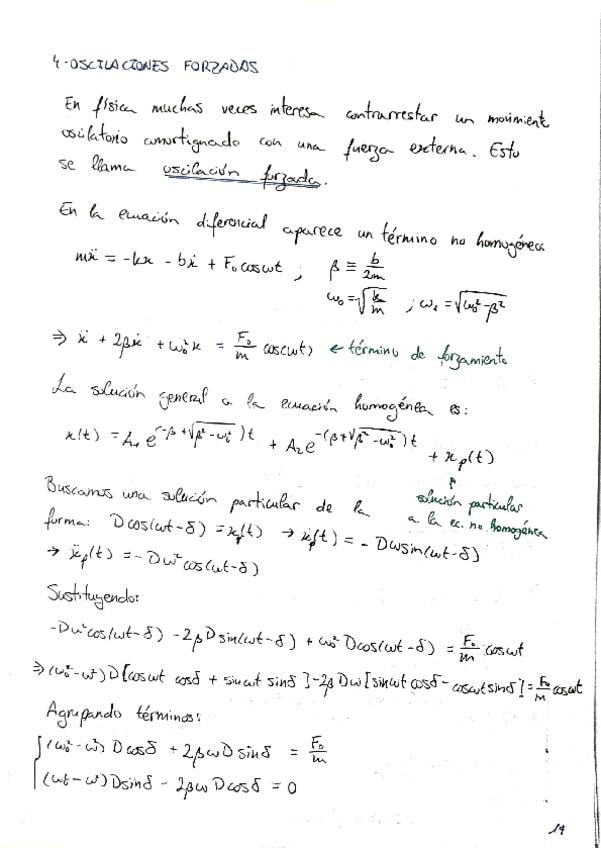 4-OSCILACIONES FORZADAS
En física muchas veces interesa contrarrestar un movimiente
oscilatorio amortiguado con una fuerza externa. Esto
se llama oscilación forzada.
En la ecuación diferencial aparece un término no homogéneo
mẍ = -kx - bẋ + F₀ cos ωt ; β ≡ b/2m
ω₀ = √(k/m) ; ω₁ = √(ω₀² - β²)
⇒ ẍ + 2βẋ + ω₀²x = F₀/m cos(ωt) ← término de forzamiento
La solución general a la ecuación homogénea es:
x(t) = A₁ e^(-β + √(β² - ω₀²))t + A₂ e^-(β + √(β² - ω₀²))t + xp(t)
solución particular
a la ec. no homogénea
Buscamos una solución particular de la
forma: D cos(ωt - δ) = xp(t) → ẋp(t) = - Dω sin(ωt - δ)
→ ẍp(t) = - Dω² cos(ωt - δ)
Sustituyendo:
-Dω² cos(ωt - δ) - 2βD sin(ωt - δ) + ω₀² D cos(ωt - δ) = F₀/m cos ωt
⇒ (ω₀² - ω²) D [cos ωt cos δ + sin ωt sin δ] - 2βDω [sin ωt cos δ - cos ωt sin δ] = F₀/m cos ωt
Agrupando términos:
(ω₀² - ω²) D cos δ + 2βωD sin δ = F₀/m
(ωt - ω²) D sin δ - 2βω D cos δ = 0
14